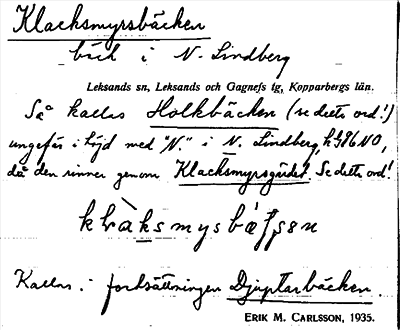 Klacksmyrsbäcken
bäck i N. Lindberg
Leksands sn, Leksands och Gagnefs tg, Kopparbergs län.
Så kallas Holkbäcken (se detta ord!)
ungefär i höjd med "N." i N. Lindberg, h4g6NO,
då den rinner genom Klacksmyrsgärdet. Se detta ord!
Kallas i fortsättningen Djuptarbäcken.
ERIK M. CARLSSON, 1935.